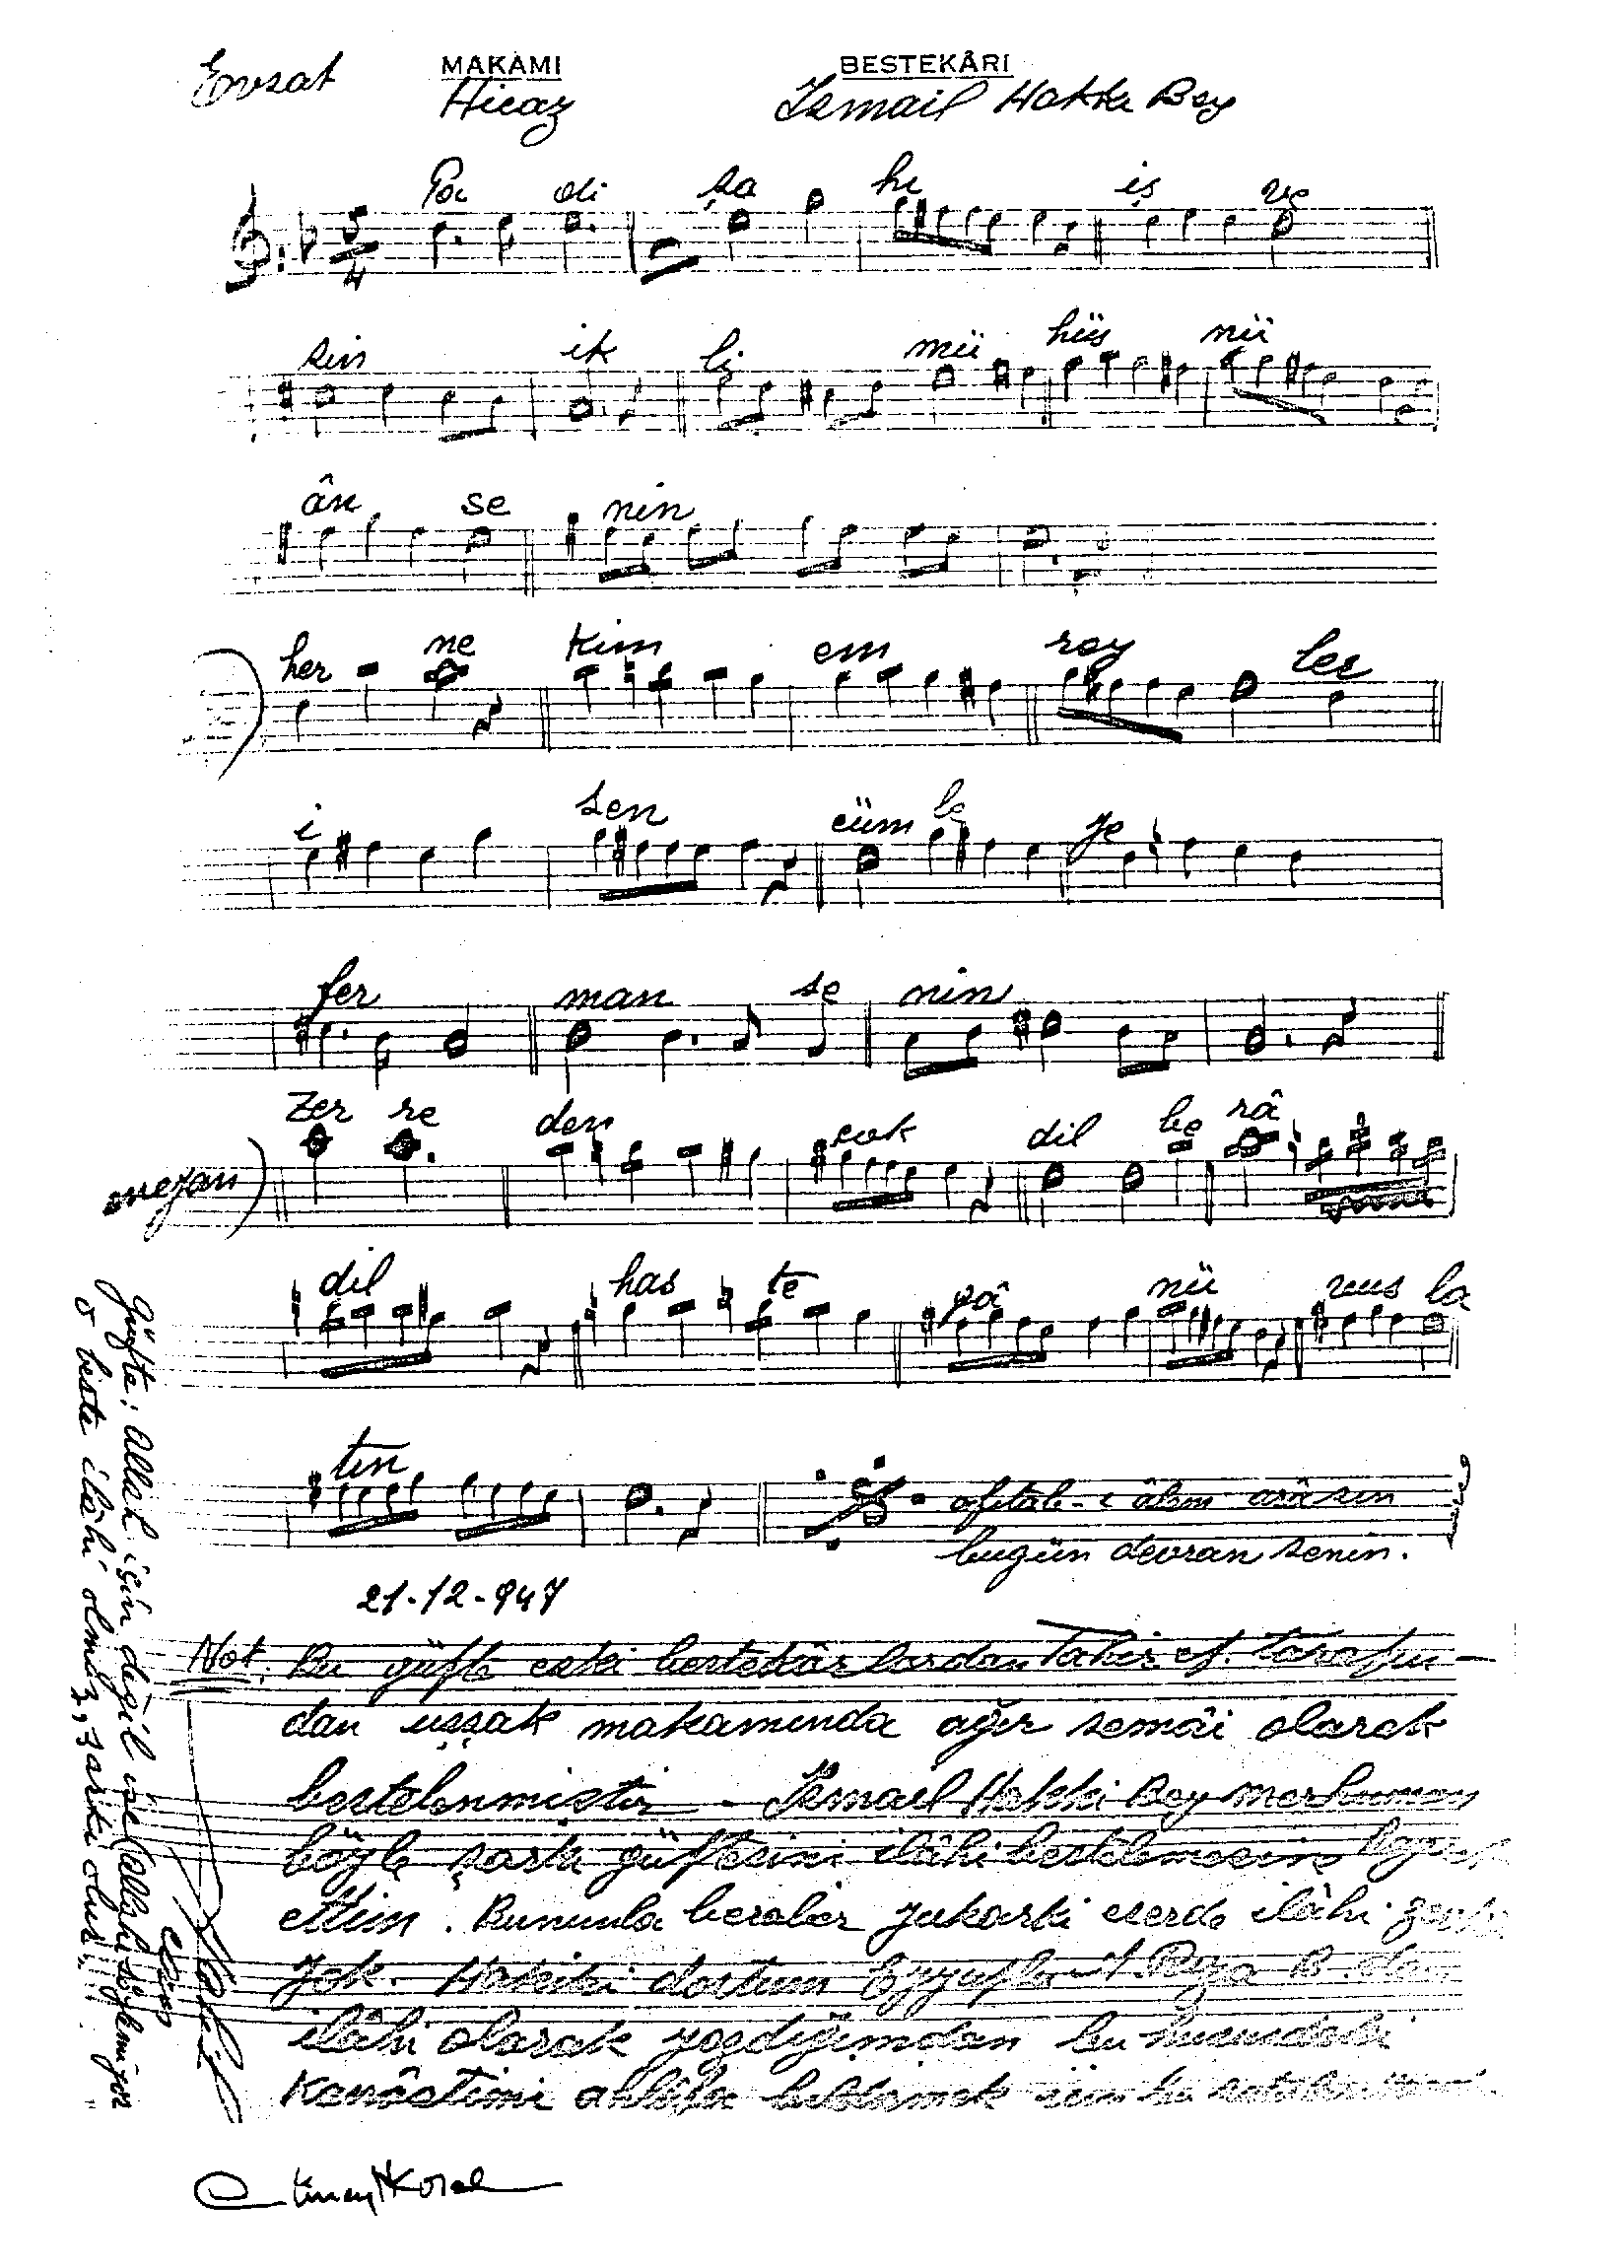 Evsat MAKAMI BESTEKÂRI
Hicaz İsmail Hakkı Bey
5
4
Pa di şa hi iş ve
sin ik li mü hüs nü
ân se nin
her ne kim em rey ler
i sen cüm le ye
fer man se nin
meyan
Zer re den çok dil be râ
dil has te gâ nü vus la
tın
afitab-ı âlem ârâsın
bugün devran senin.
21-12-947
Not. Bu güfte eski bestekârlardan Tahir ef. tarafın-
dan uşşak makamında ağır semâi olarak
bestelenmiştir - İsmail Hakkı Bey merhumun
böyle şarkı güftesini ilâhi bestelemesine
ettim. Bununla beraber yukarki eserde ilâhi
yok. Hakiki dostum A. Rıza B. dan
ilâhi olarak yazdığımdan bu husustaki
Kanâatimi
Güfte: Allah için değil ise (allahı söylemiyor
o beste ilâhi olmaz, şarkı olur!!